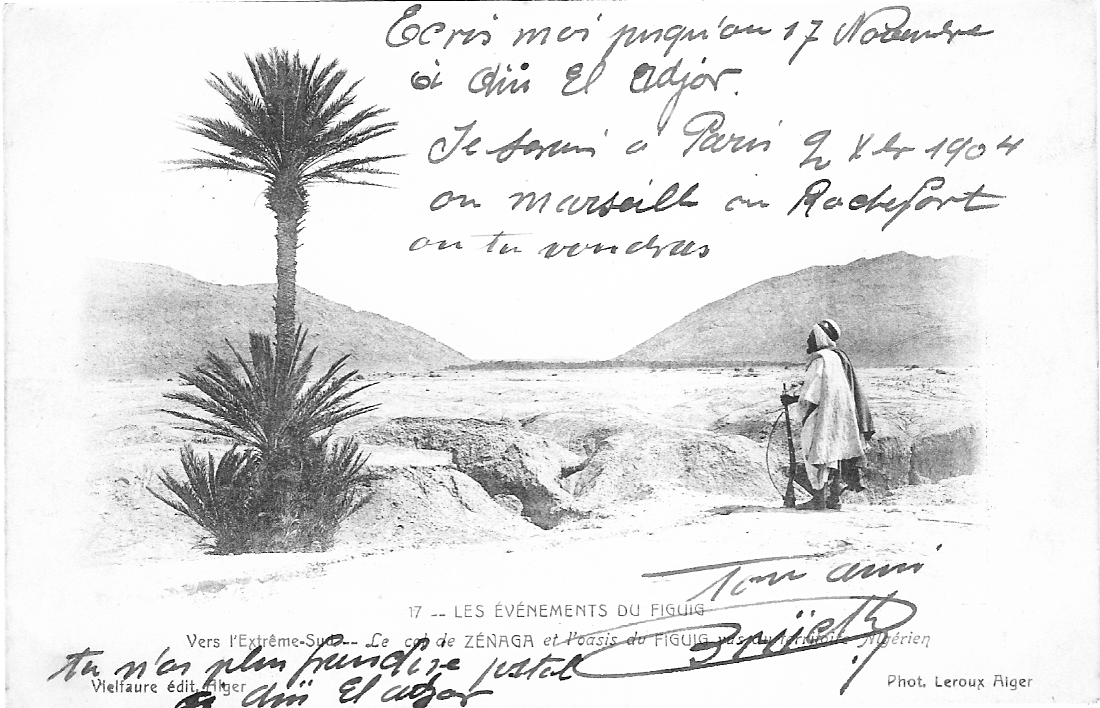 Ecris moi jusqu'au 17 Novembre
à Aïn El Adjar.
Je serai à Paris 2 Xbr 1904
ou marseille ou Rochefort
ou tu voudras
Ton ami
17 -- LES ÉVÉNEMENTS DU FIGUIG
Vers l'Extrême-Sud -- Le col de ZÉNAGA et l'oasis du FIGUIG vus du territoire Algérien
tu n'as plus postal
à Aïn El adjar
Vielfaure édit. Alger
Phot. Leroux Alger